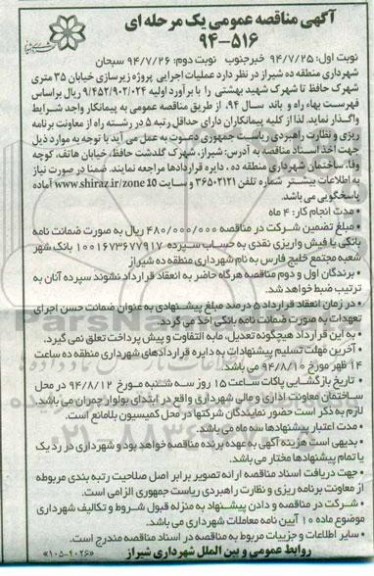 آگهی مناقصه عمومی یک مرحله ای
۹۴-۵۱۶
نوبت اول: ۹۴/۷/۲۵ خبرجنوب نوبت دوم: ۹۴/۷/۲۶ سبحان
شهرداری منطقه ده شیراز در نظر دارد عملیات اجرایی پروژه زیرسازی خیابان ۳۵ متری
شهرک حافظ تا شهرک شهید بهشتی را با برآورد اولیه ۹/۴۵۲/۹۰۲/۰۲۴ ریال براساس
فهرست بهاء راه و باند سال ۹۴، از طریق مناقصه عمومی به پیمانکار واجد شرایط
واگذار نماید. لذا از کلیه پیمانکاران دارای حداقل رتبه ۵ در رشته راه از معاونت برنامه
ریزی و نظارت راهبردی ریاست جمهوری دعوت به عمل می آید با توجه به موارد ذیل
جهت اخذ اسناد مناقصه به آدرس: شیراز، شهرک گلدشت حافظ، خیابان هاتف، کوچه
وفا، ساختمان شهرداری منطقه ده، دایره قراردادها مراجعه نمایند. ضمنا در صورت نیاز
به اطلاعات بیشتر شماره تلفن ۳۶۵۰۲۱۲۱ و سایت www.shiraz.ir/zone 10 آماده
پاسخگویی می باشد.
• مدت انجام کار: ۴ ماه
• مبلغ تضمین شرکت در مناقصه ۴۸۰/۰۰۰/۰۰۰ ریال به صورت ضمانت نامه
بانکی یا فیش واریزی نقدی به حساب سپرده ۱۰۰۱۶۷۳۶۷۷۹۱۷ بانک شهر
شعبه مجتمع خلیج فارس به نام شهرداری منطقه ده شیراز
• برندگان اول و دوم مناقصه هرگاه حاضر به انعقاد قرارداد نشوند سپرده آنان به
ترتیب ضبط خواهد شد.
• در زمان انعقاد قرارداد ۵ درصد مبلغ پیشنهادی به عنوان ضمانت حسن اجرای
تعهدات به صورت ضمانت نامه بانکی اخذ می گردد.
• به این قرارداد هیچگونه تعدیل، مابه التفاوت و پیش پرداخت تعلق نمی گیرد.
• آخرین مهلت تسلیم پیشنهادات به دایره قراردادهای شهرداری منطقه ده ساعت
۱۴ ظهر مورخ ۹۴/۸/۱۰ می باشد.
• تاریخ بازگشایی پاکات ساعت ۱۵ روز سه شنبه مورخ ۹۴/۸/۱۲ در محل
ساختمان معاونت اداری و مالی شهرداری واقع در ابتدای بولوار چمران می باشد.
لازم به ذکر است حضور نمایندگان شرکتها در محل کمیسیون بلامانع است.
• مدت اعتبار پیشنهادها سه ماه می باشد.
• بدیهی است هزینه آگهی به عهده برنده مناقصه خواهد بود و شهرداری در رد یک
یا تمام پیشنهادها مختار می باشد.
• جهت دریافت اسناد مناقصه ارائه تصویر برابر اصل صلاحیت رتبه بندی مربوطه
از معاونت برنامه ریزی و نظارت راهبردی ریاست جمهوری الزامی است.
• شرکت در مناقصه و دادن پیشنهاد به منزله قبول شروط و تکالیف شهرداری
موضوع ماده ۱۰ آیین نامه معاملات شهرداری می باشد.
• سایر اطلاعات و جزییات مربوط به مناقصه در اسناد مناقصه مندرج است.
روابط عمومی و بین الملل شهرداری شیراز «۱۰۵۰۹۰۲۶»